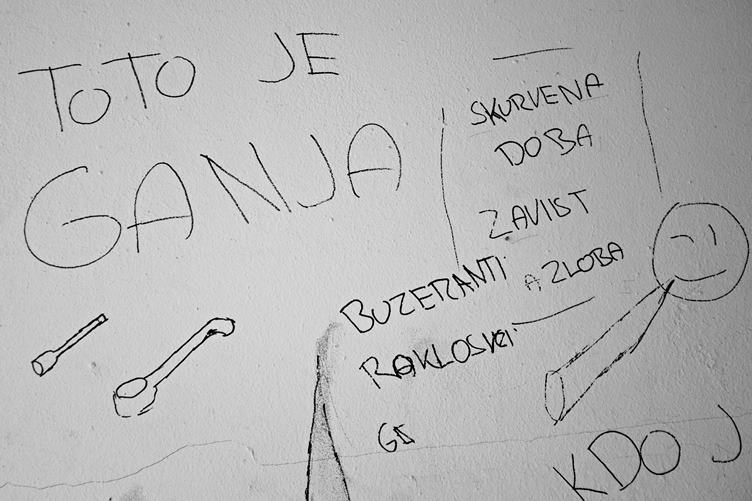 TOTO JE
GANJA
SKURVENA
DOBA
ZAVIST
A ZLOBA
BUZERANTI
KDO J